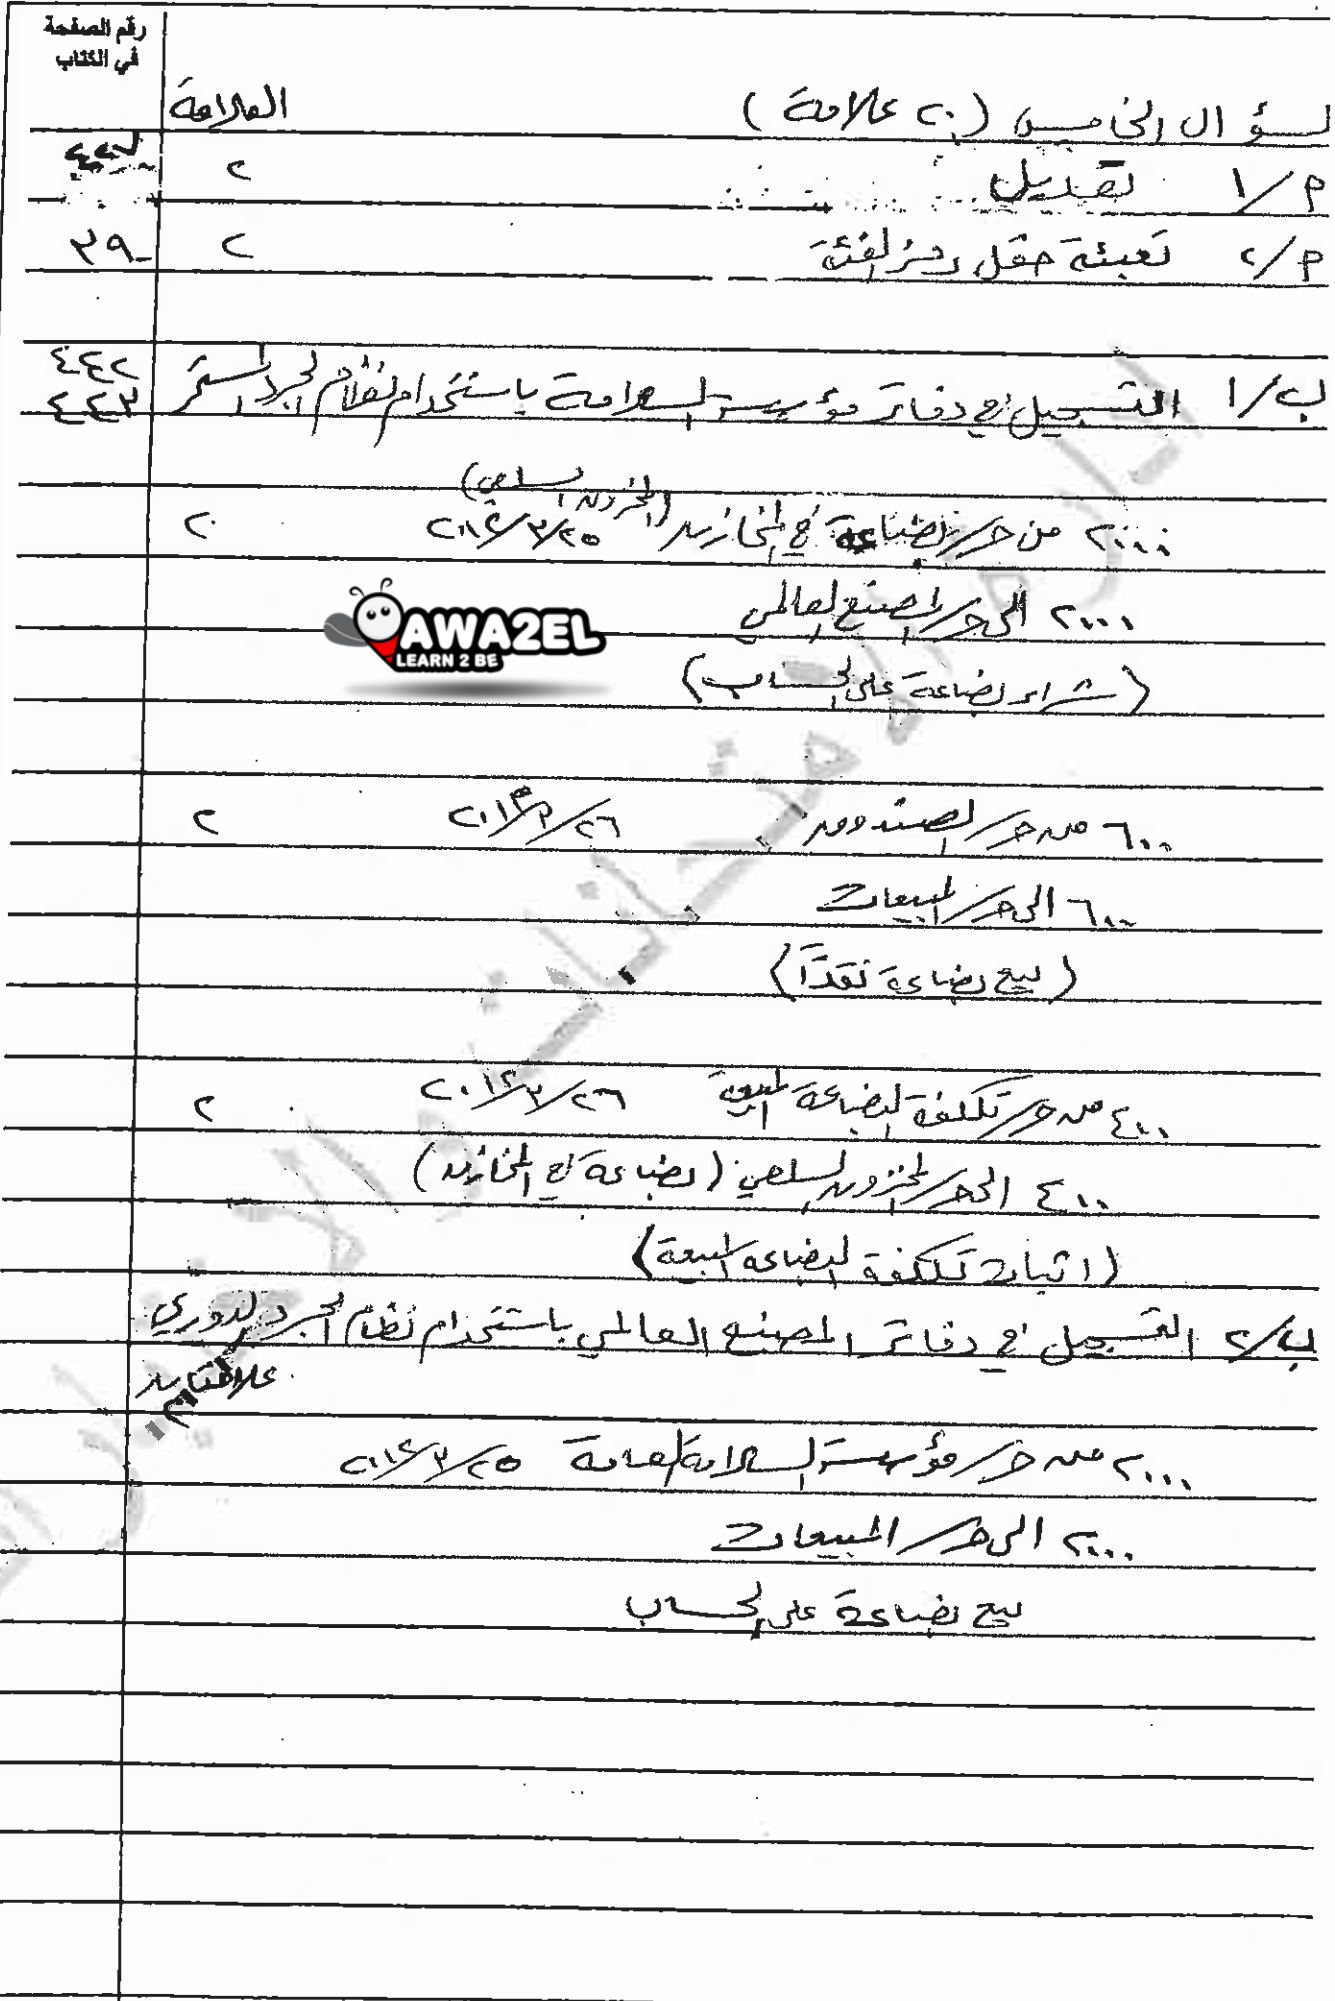 رقم الصفحة
في الكتاب
لسؤال الخامس (٢٠ علامة) العلامة
أ/١ تعديل ٢
أ/٢ تعبئة حقل رمز الفئة ٢ ٣٩٠
ب/١ التسجيل في دفاتر مؤسسة السلامة باستخدام نظام الجرد المستمر ٤٤٢
٤٤٣
(المخزون السلعي)
٢٠٠٠ من حـ/ بضاعة في المخازن ٢٠١٢/٣/٢٥ ٢
٢٠٠٠ الى حـ/ المصنع العالمي
AWA2EL
LEARN 2 BE
(شراء بضاعة على الحساب)
٦٠٠ من حـ/ الصندوق ٢٠١٢/٣/٢٦ ٢
٦٠٠ الى حـ/ المبيعات
(بيع بضاعة نقداً)
٤٠٠ من حـ/ تكلفة البضاعة المبيعة ٢٠١٢/٣/٢٦ ٢
٤٠٠ الى حـ/ المخزون السلعي (بضاعة في المخازن)
(اثبات تكلفة البضاعة المبيعة)
ب/٢ التسجيل في دفاتر المصنع العالمي باستخدام نظام الجرد الدوري
علامتان
٢٠٠٠ من حـ/ مؤسسة السلامة العامة ٢٠١٢/٣/٢٥
٢٠٠٠ الى حـ/ المبيعات
بيع بضاعة على الحساب